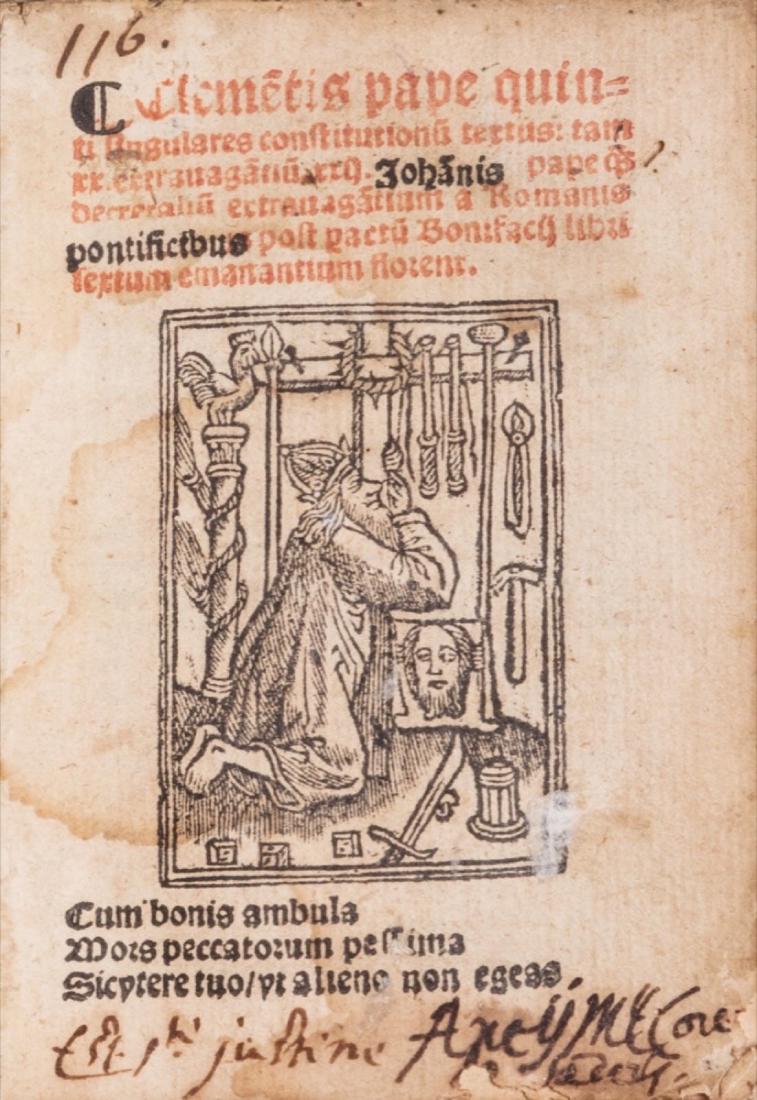 116.
C Clemētis pape quin=
ti singulares constitutionū textus: tam
xx. extrauagātiū xxij. Johānis pape qȝ
decretaliū extrauagātium a Romanis
pontificibus post pactū Bonifacij libri
sextum emanantium florent.
Cum bonis ambula
Mors peccatorum pessima
Sic vtere tuo/vt alieno non egeas.
Est sti justine